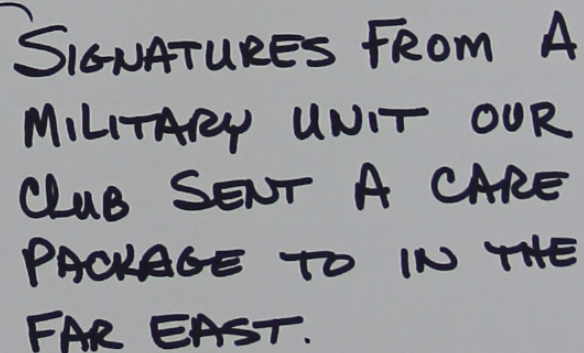 SIGNATURES FROM A
MILITARY UNIT OUR
CLUB SENT A CARE
PACKAGE TO IN THE
FAR EAST.